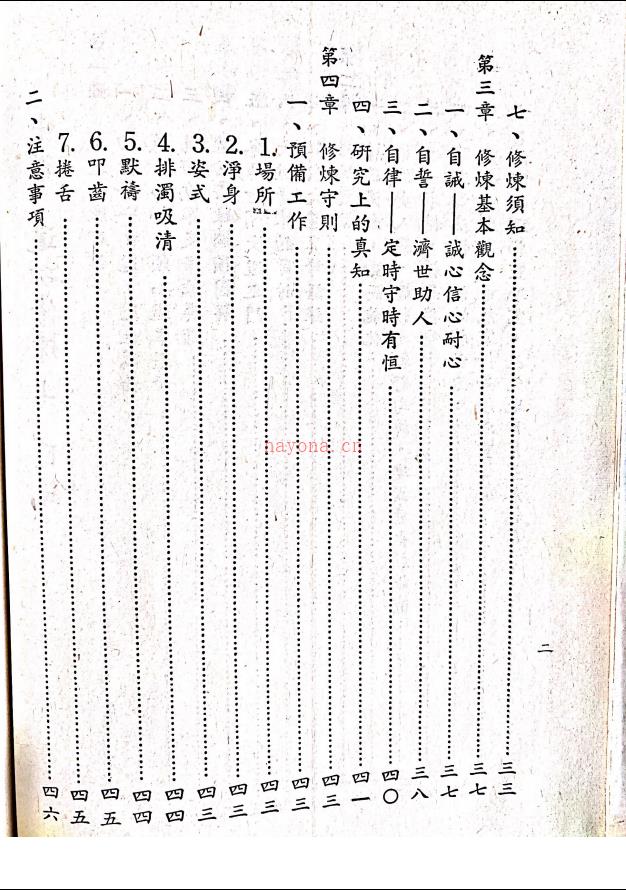 七、修煉須知…………三三
第三章 修煉基本觀念…………三七
一、自誠——誠心信心耐心…………三七
二、自誓——濟世助人…………三八
三、自律——定時守時有恒…………四〇
四、研究上的真知…………四一
第四章 修煉守則…………四三
一、預備工作…………四三
1.場所…………四三
2.淨身…………四三
3.姿式…………四三
4.排濁吸清…………四四
5.默禱…………四四
6.叩齒…………四五
7.捲舌…………四五
二、注意事項…………四六
二
nayona.cn